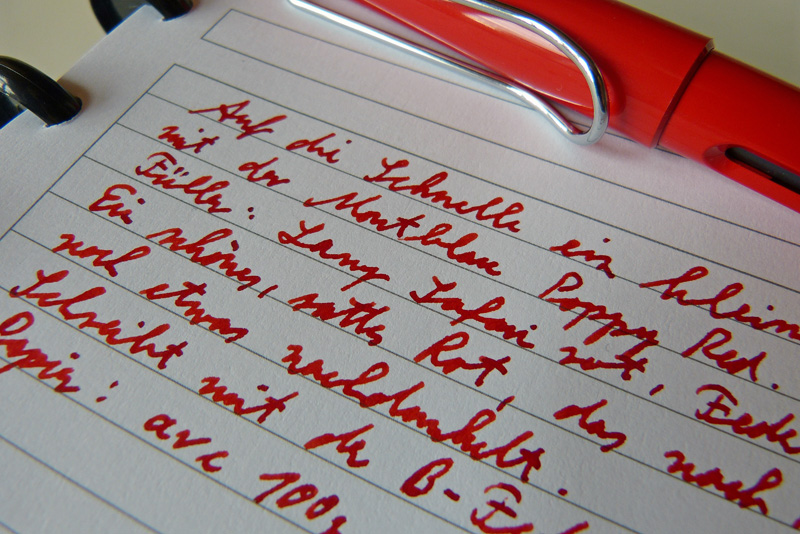 Auf die Schnelle ein klein
mit der Montblanc Poppy Red.
Füller: Lamy Safari rot, Fede
Ein schönes, sattes Rot, das nach
noch etwas nachdunkelt.
Schreibt mit der B-Fe
Papier: avc 100g